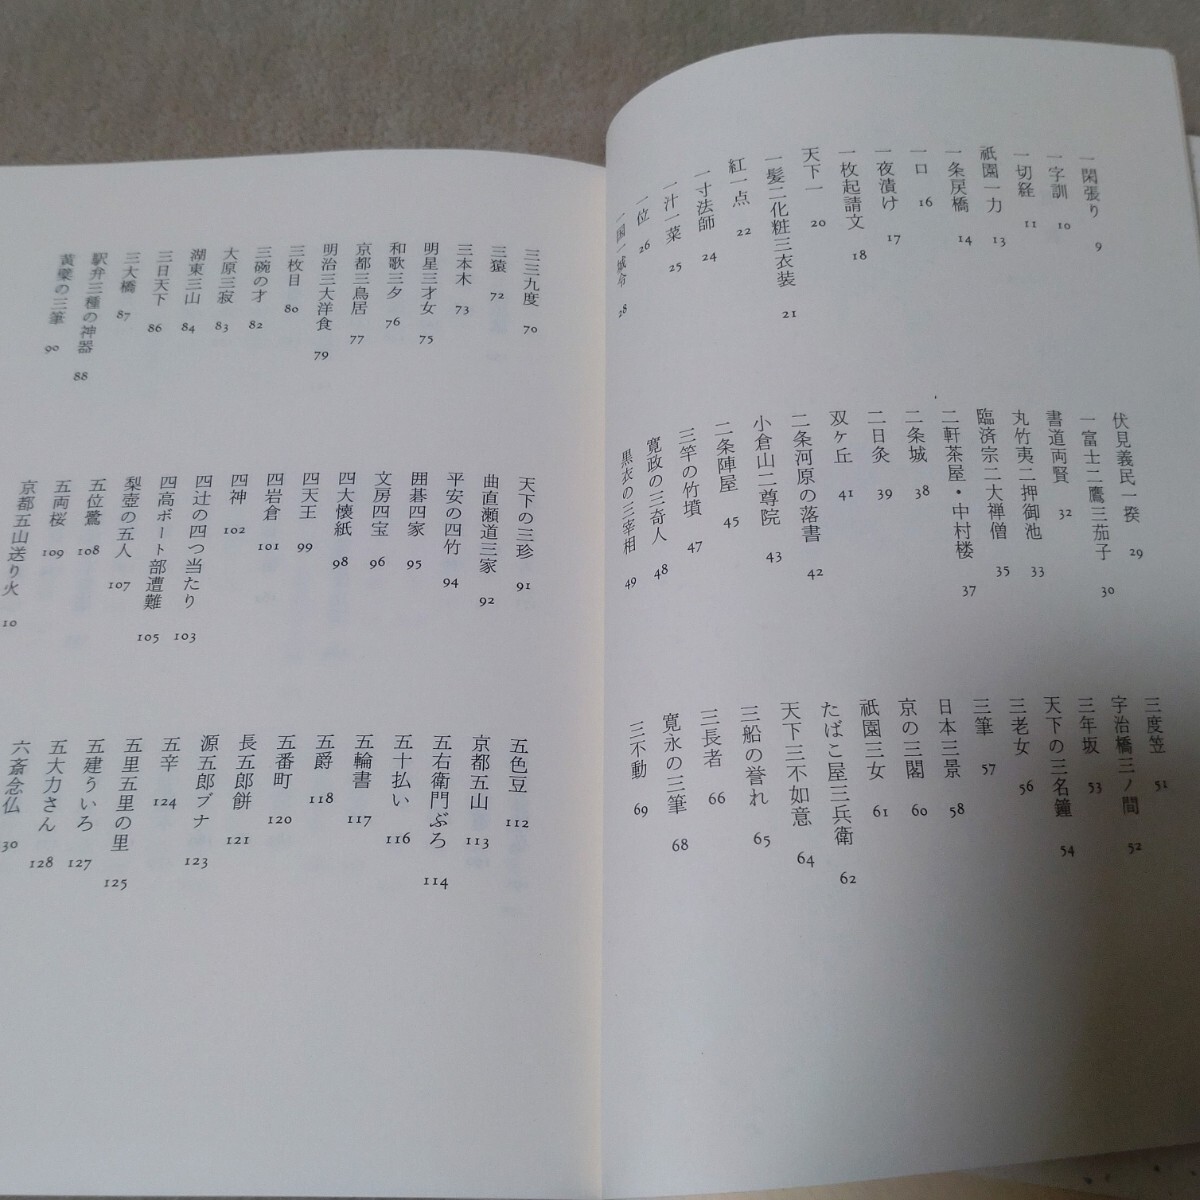 一閑張り 9
一字訓 10
一切経 11
祇園一力 13
一条戻橋 14
一口 16
一夜漬け 17
一枚起請文 18
天下一 20
一髪二化粧三衣装 21
紅一点 22
一寸法師 24
一汁一菜 25
一位 26
一国一城令 28
伏見義民一揆 29
一富士二鷹三茄子 30
書道両賢 32
丸竹夷二押御池 33
臨済宗二大禅僧 35
二軒茶屋・中村楼 37
二条城 38
二日灸 39
双ヶ丘 41
二条河原の落書 42
小倉山二尊院 43
二条陣屋 45
三竿の竹墳 47
寛政の三奇人 48
黒衣の三宰相 49
三度笠 51
宇治橋三ノ間 52
三年坂 53
天下の三名鐘 54
三老女 56
三筆 57
日本三景 58
京の三閣 60
祇園三女 61
たばこ屋三兵衛 62
天下三不如意 64
三船の誉れ 65
三長者 66
寛永の三筆 68
三不動 69
三三九度 70
三猿 72
三本木 73
明星三才女 75
和歌三夕 76
京都三鳥居 77
明治三大洋食 79
三枚目 80
三碗の才 82
大原三寂 83
湖東三山 84
三日天下 86
三大橋 87
駅弁三種の神器 88
黄檗の三筆 90
天下の三珍 91
曲直瀬道三家 92
平安の四竹 94
囲碁四家 95
文房四宝 96
四大懐紙 98
四天王 99
四岩倉 101
四神 102
四辻の四つ当たり 103
四高ボート部遭難 105
梨壺の五人 107
五位鷺 108
五両桜 109
京都五山送り火 10
五色豆 112
京都五山 113
五右衛門ぶろ 114
五十払い 116
五輪書 117
五爵 118
五番町 120
長五郎餅 121
源五郎ブナ 123
五辛 124
五里五里の里 125
五建ういろ 127
五大力さん 128
六斎念仏 30